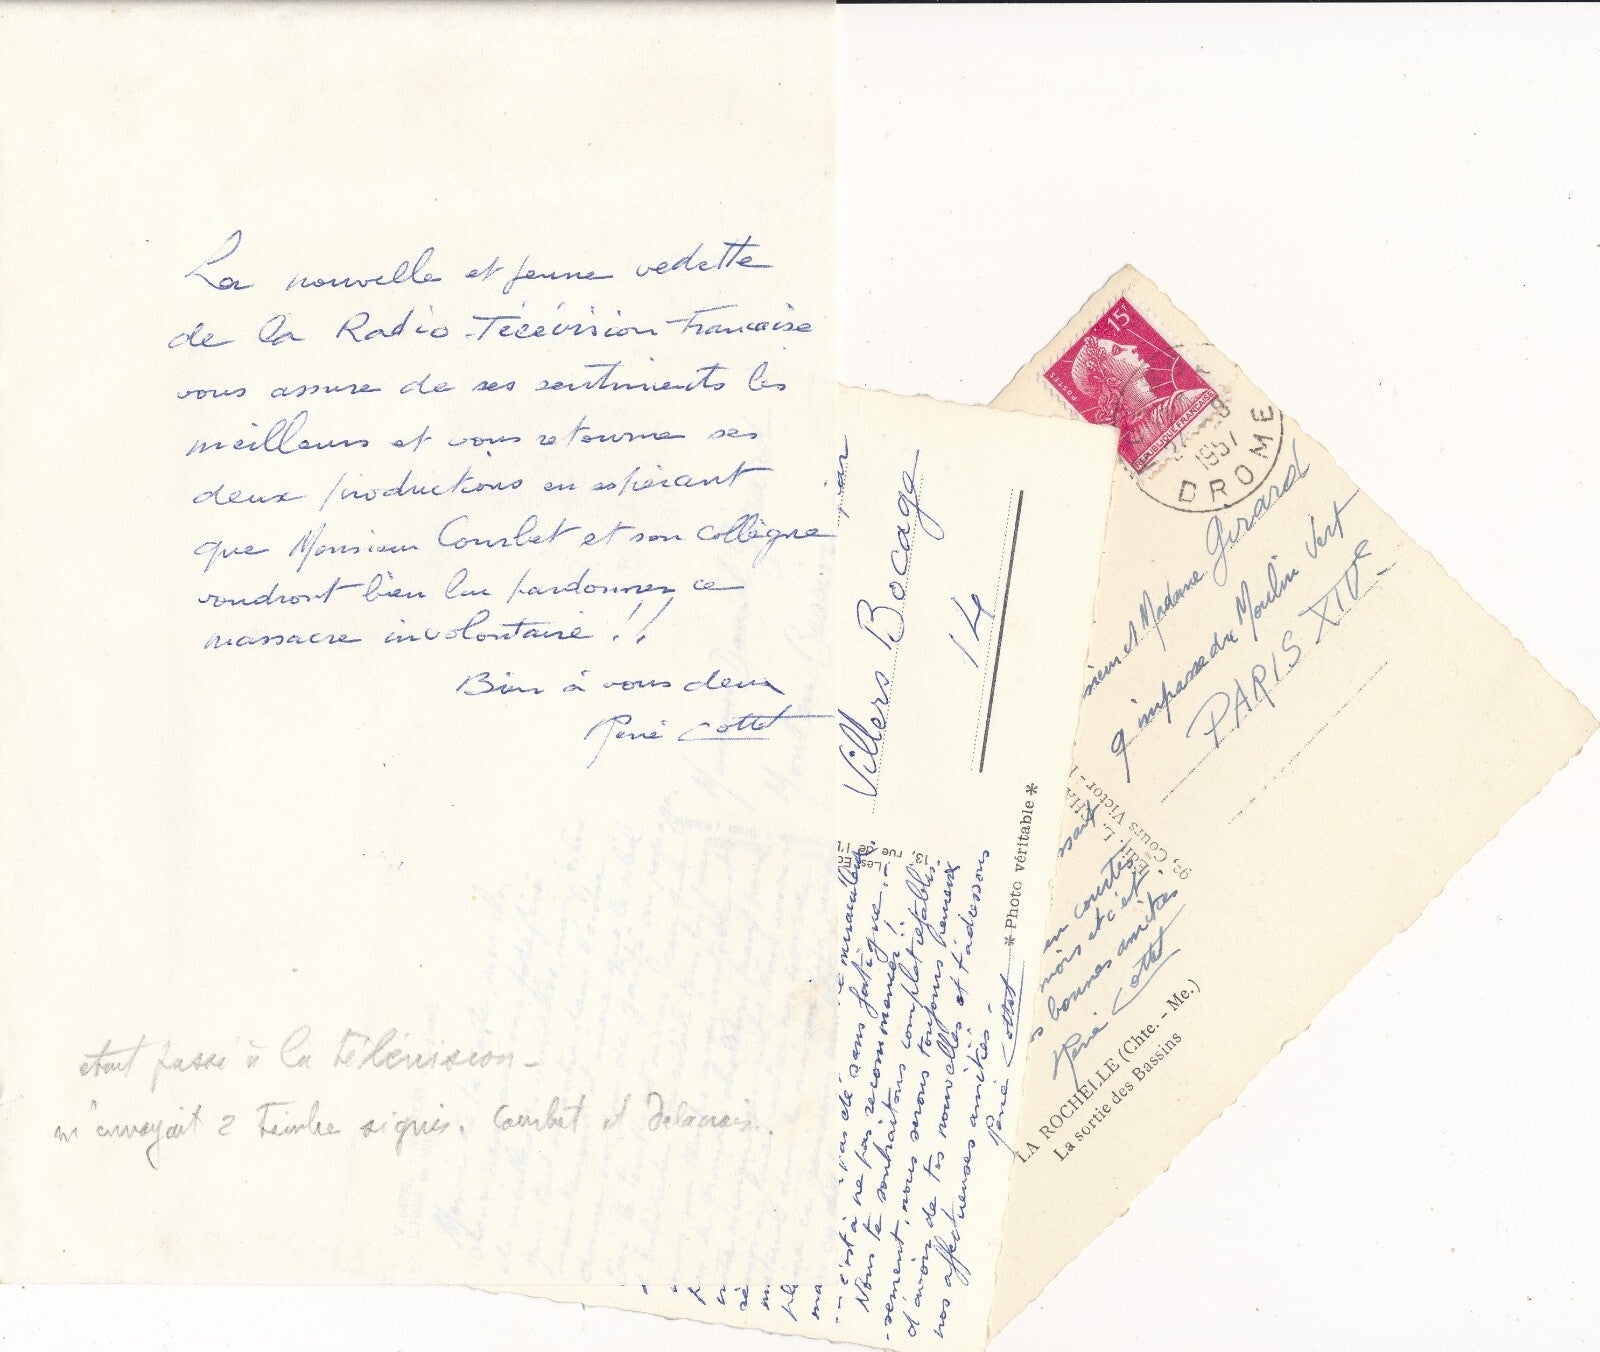 La nouvelle et jeune vedette
de la Radio-Télévision Française
vous assure de ses sentiments les
meilleurs et vous retourne ses
deux productions en espérant
que Monsieur Combet et son collègue
voudront bien lui pardonner ce
massacre involontaire !!
Bien à vous deux
René Cottet
étant passé à la télévision -
m'envoyait 2 timbre signés. Combet et Delacroix.
Villers Bocage
14
* Photo véritable *
13, rue de l'
été sans fatigue, à
c'est à ne pas recommencer !!
Nous te souhaitons complet rétablis-
-sement, nous serons toujours heureux
d'avoir de tes nouvelles et t'adressons
nos affectueuses amitiés -
René Cottet
15F
POSTES
REPUBLIQUE FRANÇAISE
1957
DROME
sieur et Madame Girard
9 impasse du Moulin Vert
PARIS XIVe
Edit. L. CHA
92, Cours Victor-
en courtes
mois et c'est
bonnes amitiés
René Cottet
LA ROCHELLE (Chte. - Me.)
La sortie des Bassins